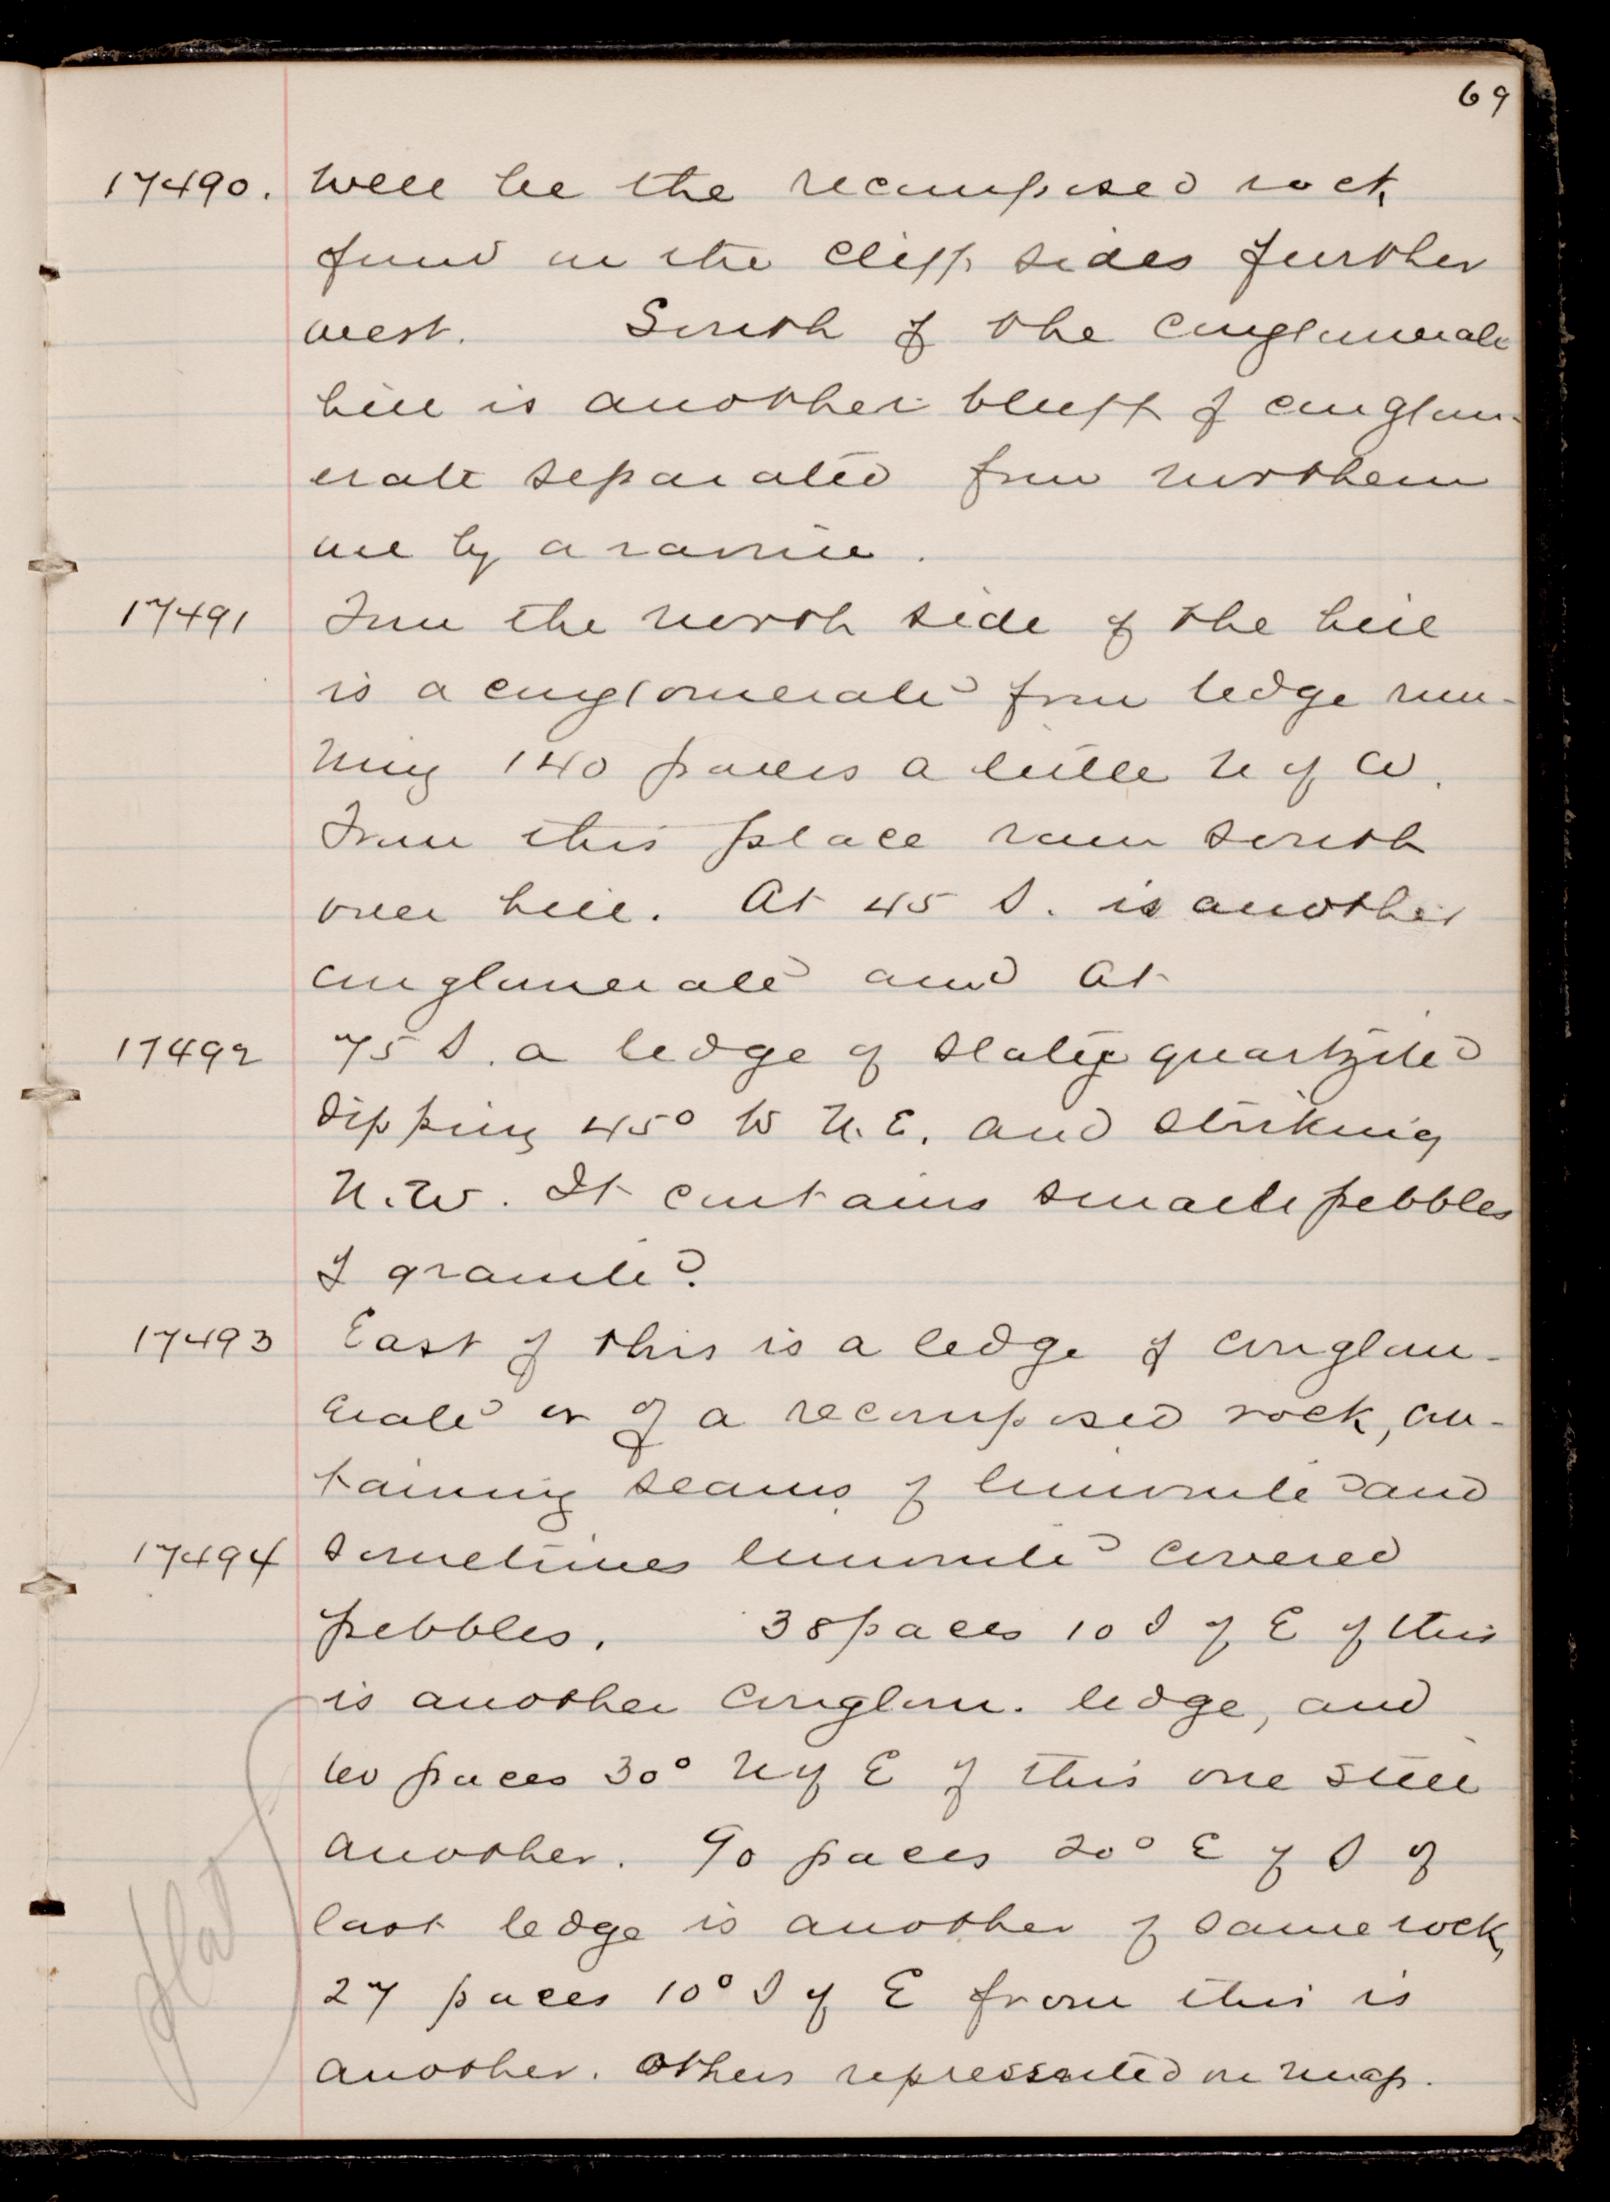 69
17490. well be the recomposed rock
found in the cliff sides further
west. South of the conglomerate
hill is another bluff of conglom-
erate separated from northern
one by a ravine.
17491 From the north side of the hill
is a conglomerate from ledge run-
ning 140 paces a little N of W.
From this place ran south
over hill. At 45 S. is another
conglomerate and at
17492 75 S. a ledge of slaty quartzite
dipping 45° to N.E. and striking
N.W. It contains small pebbles
of granite.
17493 East of this is a ledge of conglom-
erate or of a recomposed rock, con-
taining seams of limonite and
17494 sometimes limonite covered
pebbles. 38 paces 10 S of E of this
is another conglom. ledge, and
60 paces 30° N of E of this one still
another. 90 paces 20° E of S of
last ledge is another of same rock,
27 paces 10° S of E from this is
another. Others represented on map.